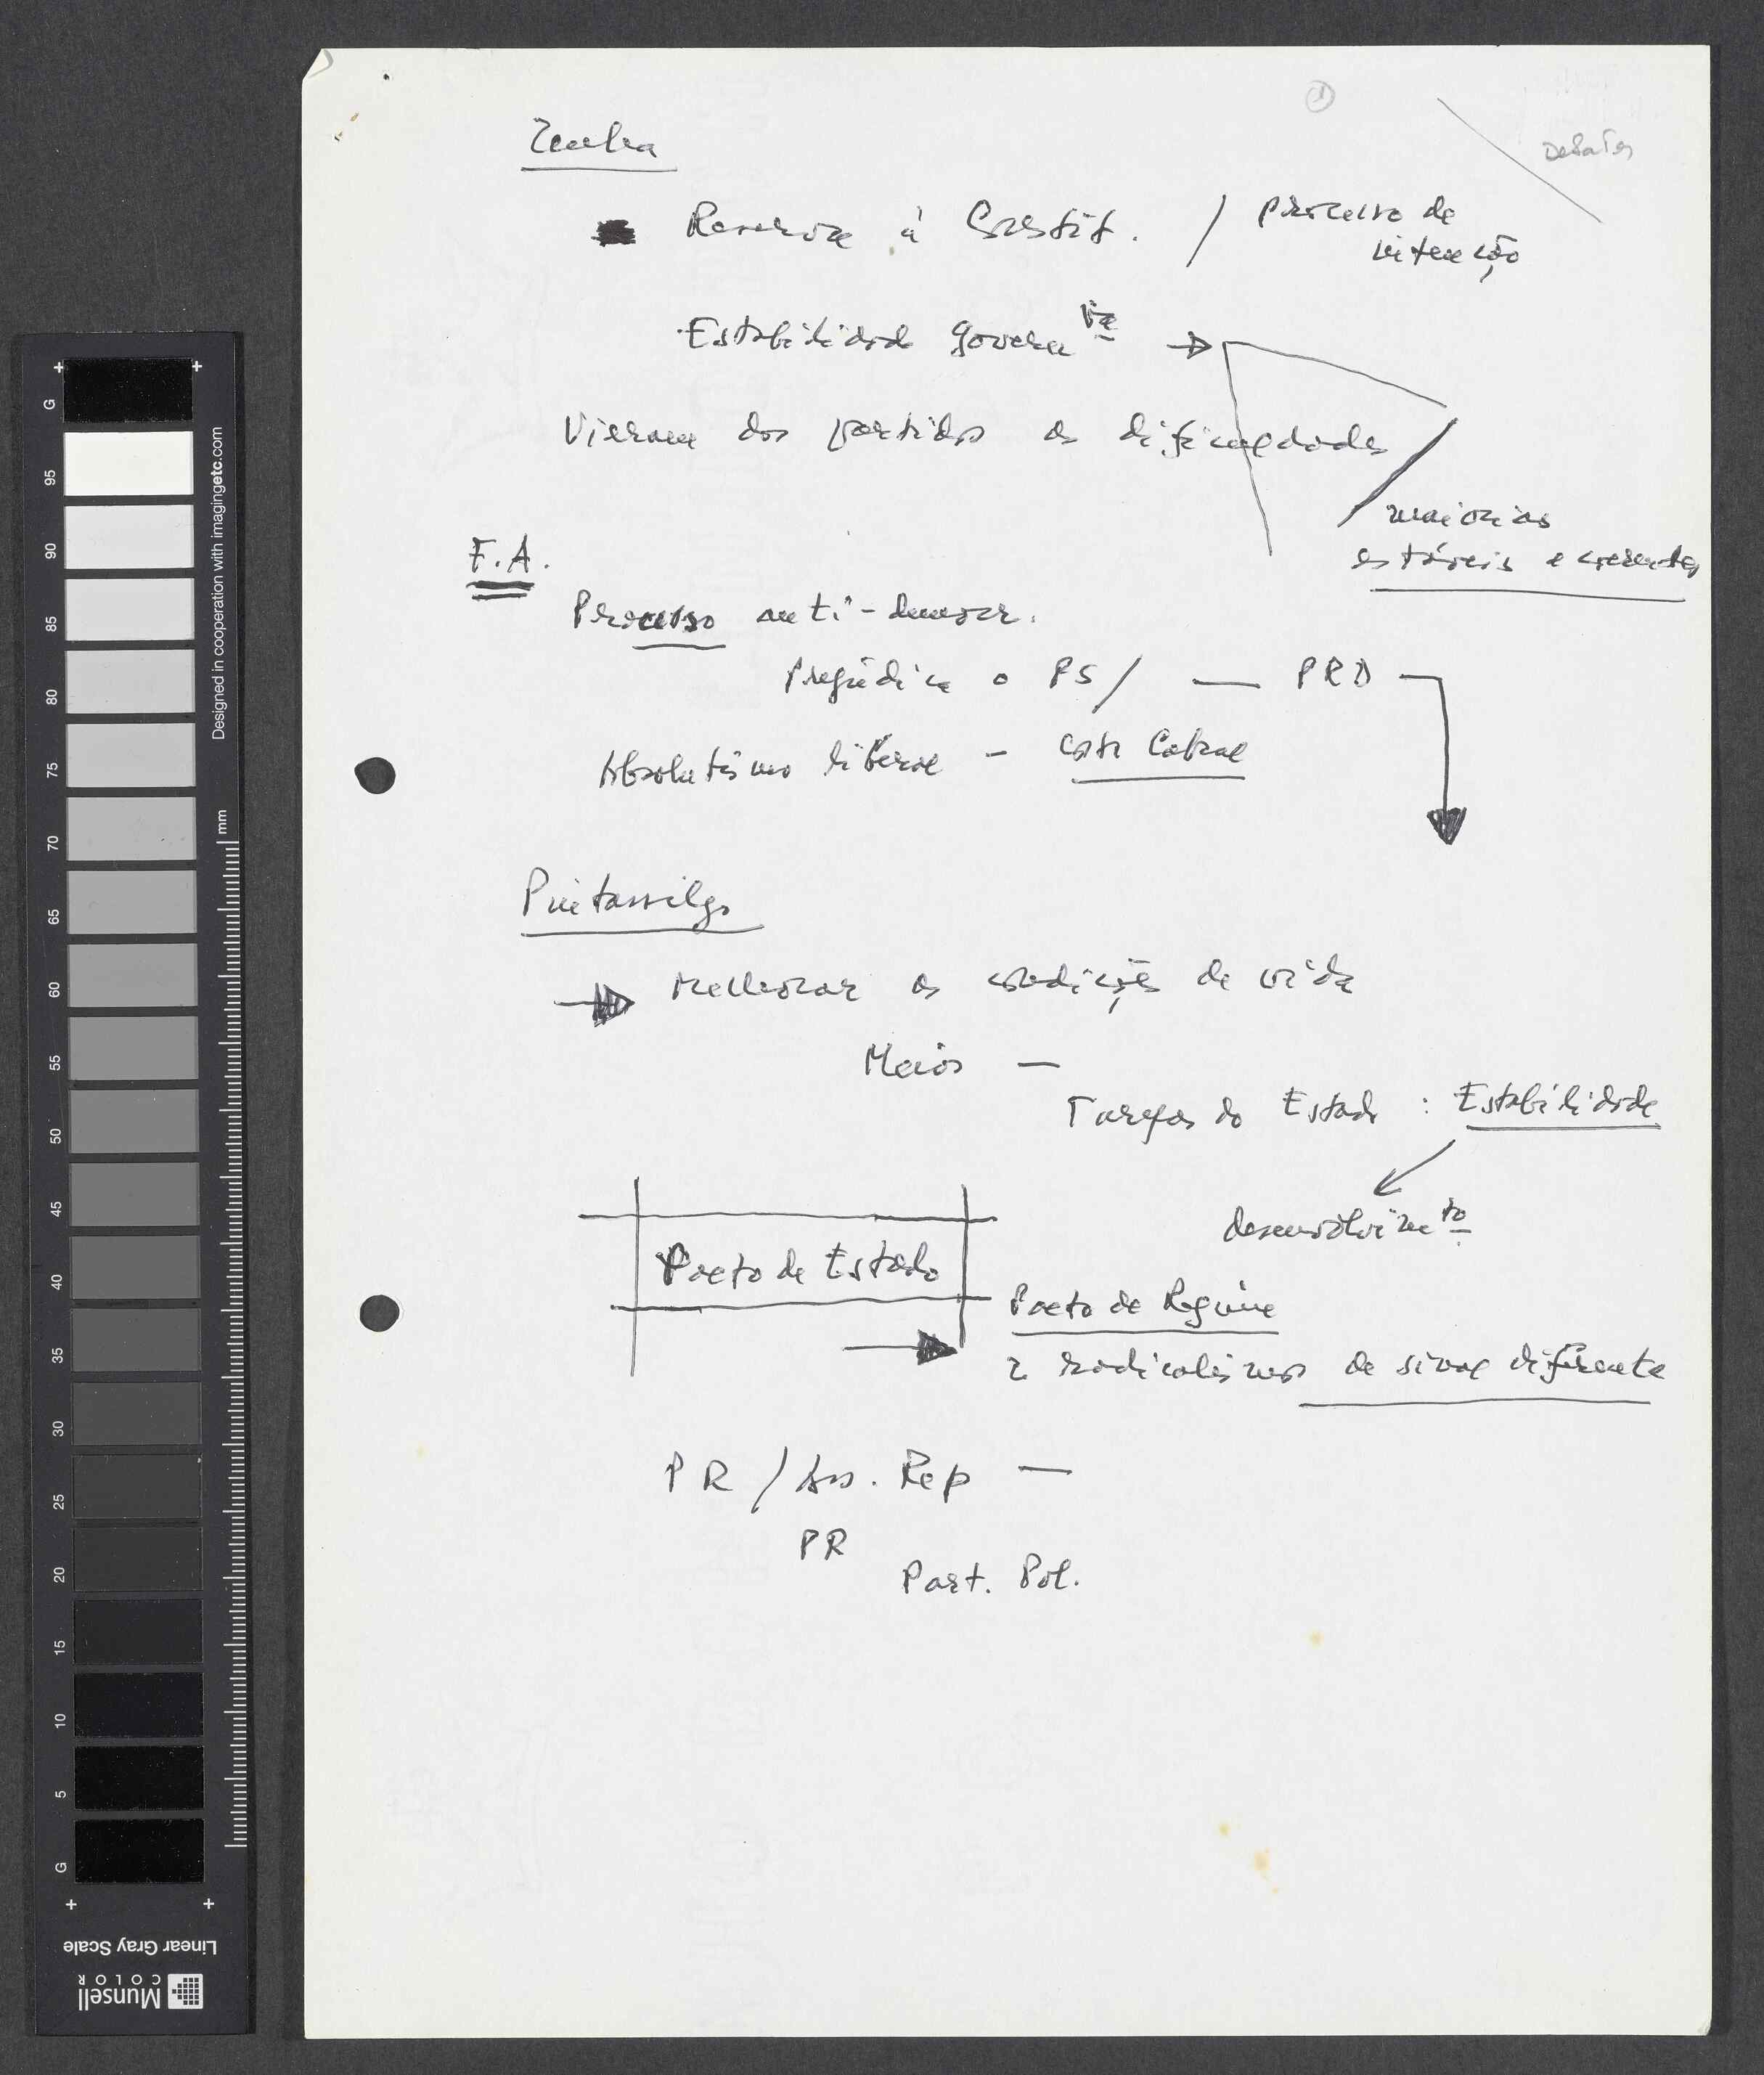 ①
Debates
Zenha
Reverore à Constit. / processo de
intenção
Estabilidade governva →
Vieram dos partidos as dificuldades
maiorias
estáveis e coerentes
F.A.
Processo anti-democr.
Prejudica o PS / — PRD
Absolutismo liberal — Costa Cabral
Pintassilgo
→ Melhorar as condições de vida
Meios —
Tarefas do Estado : Estabilidade
desenvolvimto
Pacto de Estado
Pacto de Regime
→ 2 radicalismos de sinal diferente
PR / Ass. Rep —
PR
Part. Pol.
G
95
90
85
80
75
70
65
60
55
50
45
40
35
30
25
20
15
10
5
G
mm
Designed in cooperation with imagingetc.com
Linear Gray Scale
Munsell
COLOR